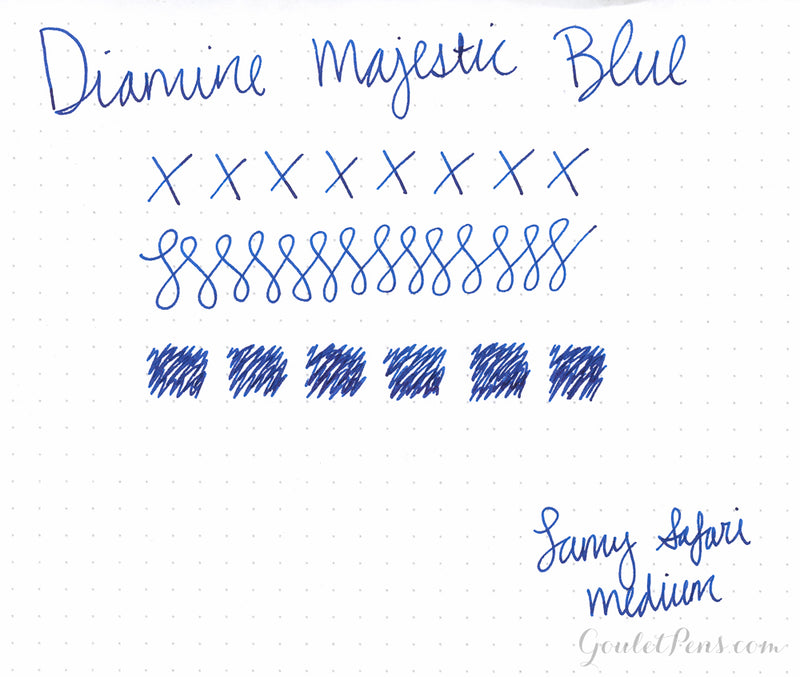 Diamine Majestic Blue
X X X X X X X X
Lamy Safari
medium
GouletPens.com